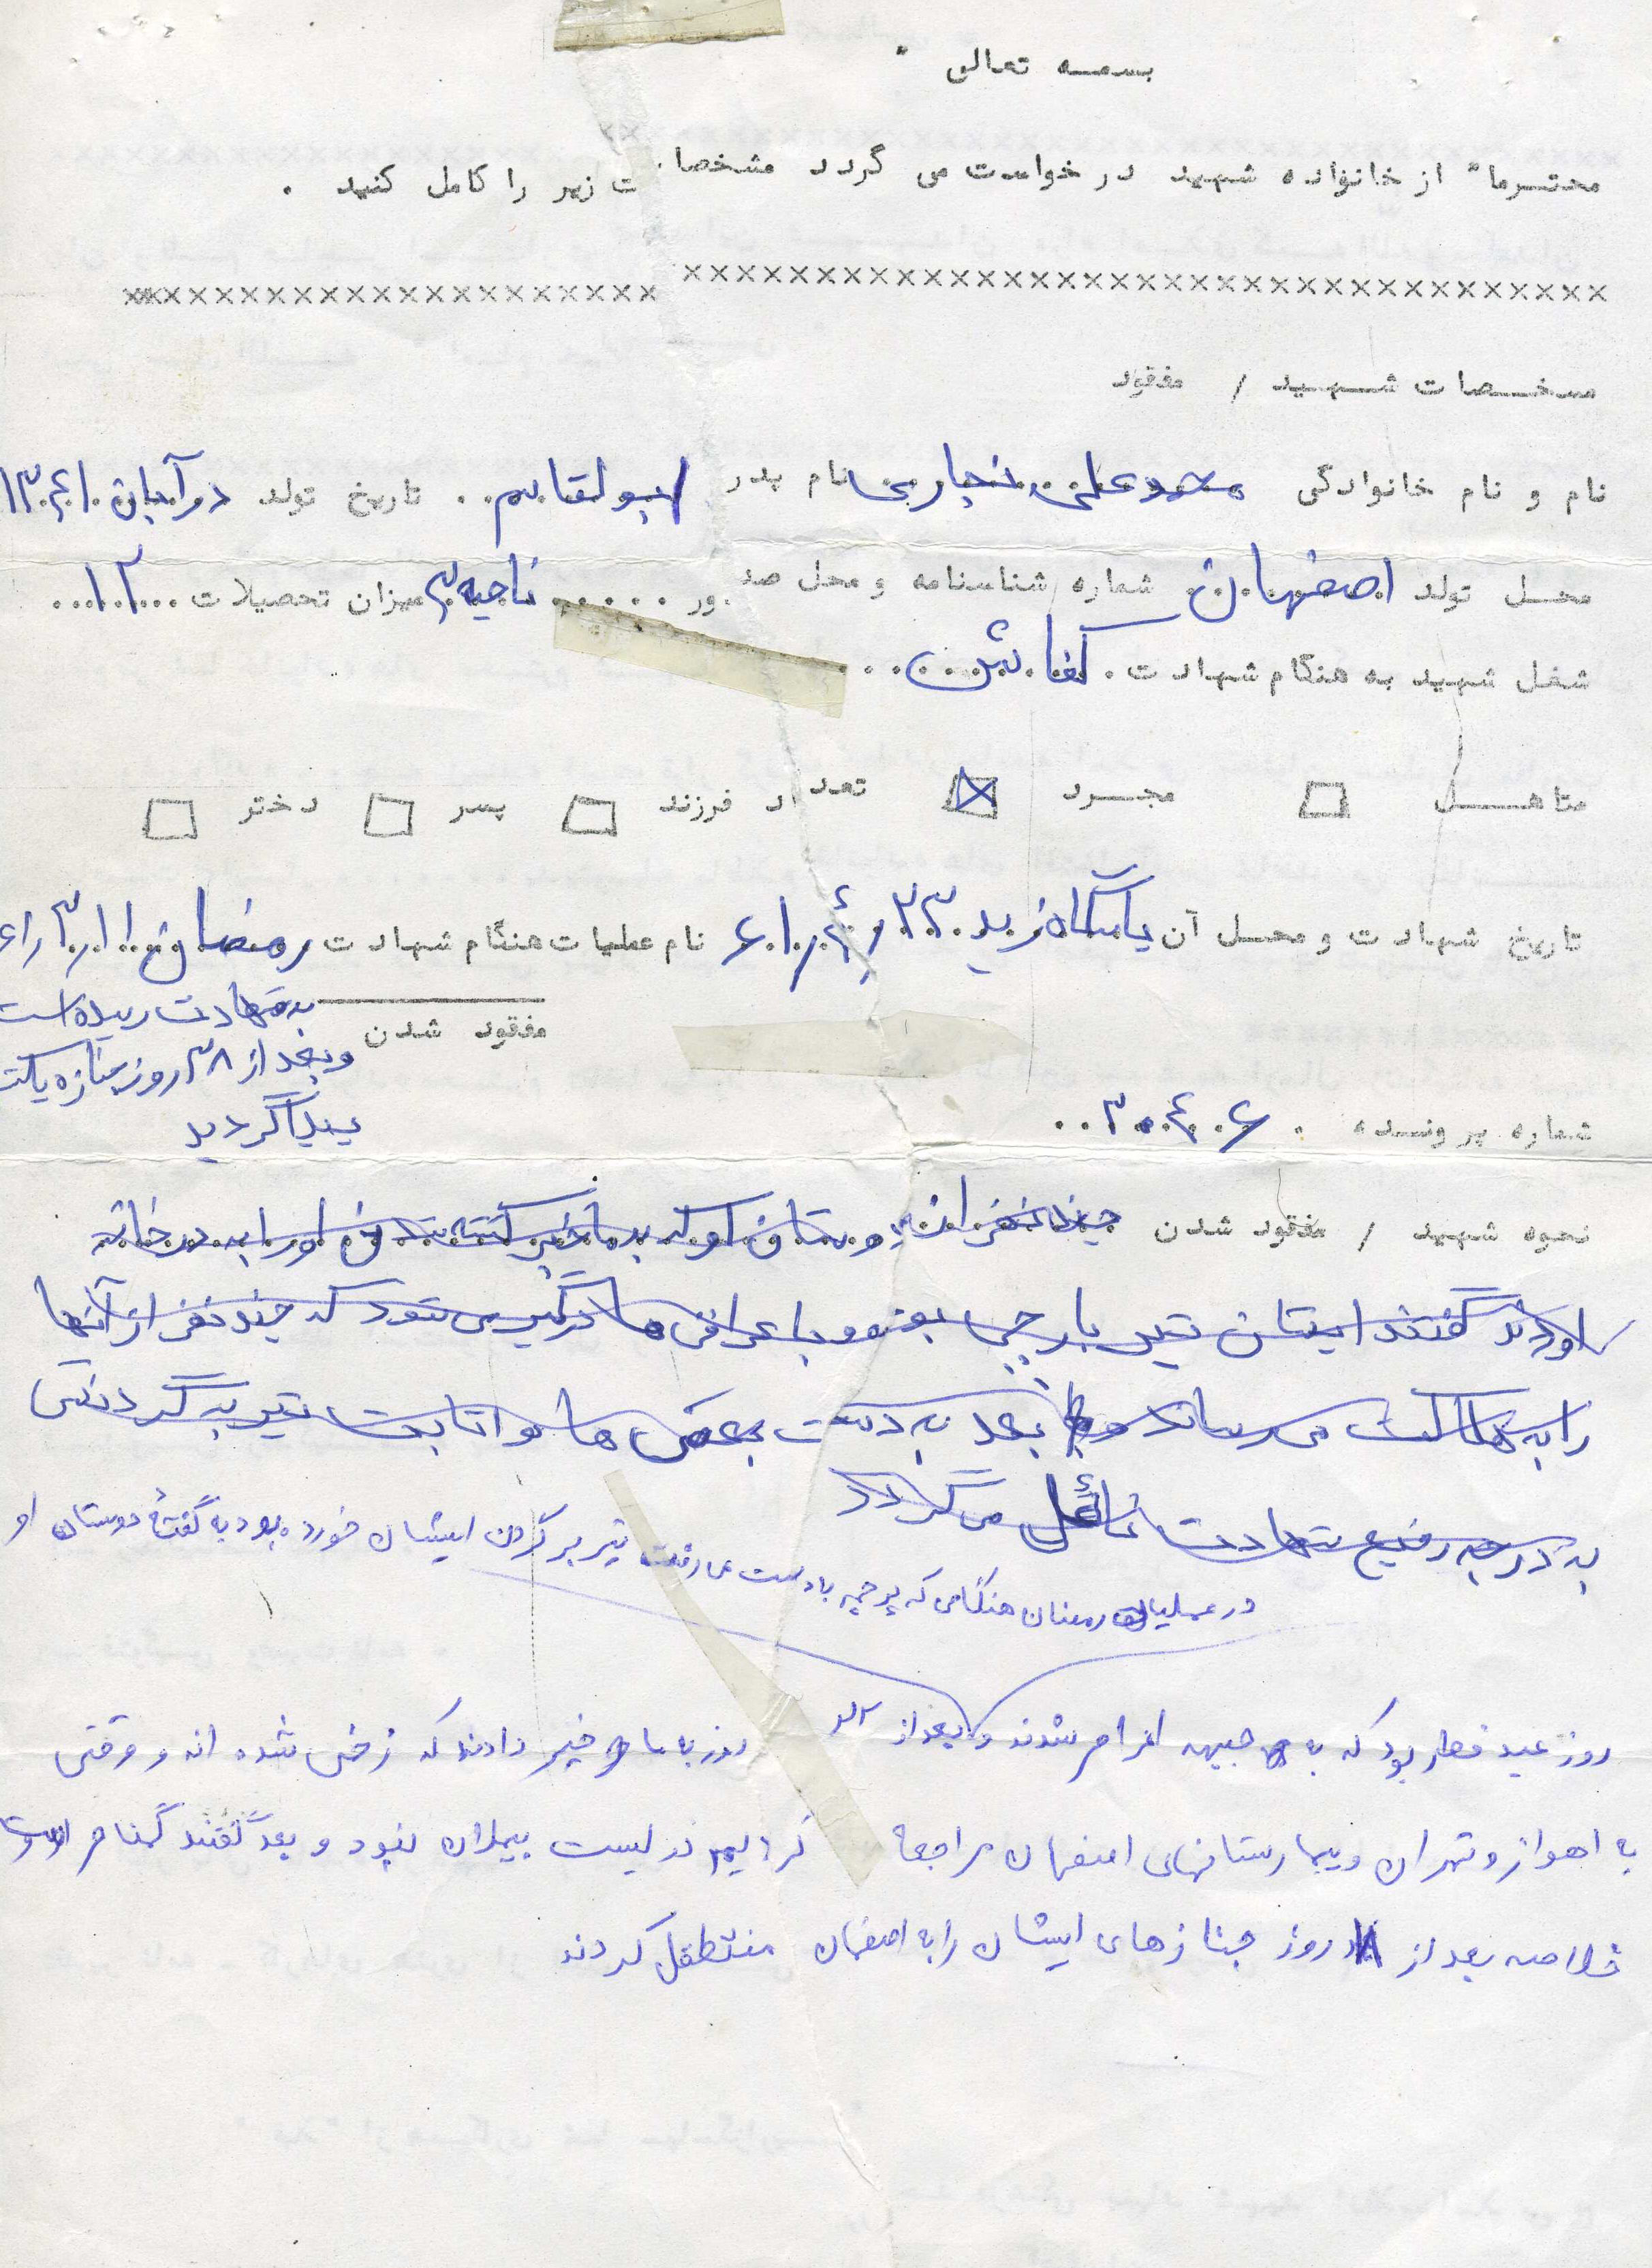 بسمه تعالی
محترما" از خانواده شهید درخواست می گردد مشخصات زیر را کامل کنید .
مشخصات شهید / مفقود
نام و نام خانوادگی محمدعلی نجاریی نام پدر ابولقاسم تاریخ تولد در آبان
محل تولد اصفهان شماره شناسنامه و محل صدور ناحیه ۳ میزان تحصیلات ۱۲
شغل شهید به هنگام شهادت کفاش
متاهل مجرد تعداد فرزند پسر دختر
تاریخ شهادت و محل آن پاسگاه زید ۲۳ر۴ر۶۱ نام عملیات هنگام شهادت رمضان
مفقود شدن
به شهادت رسیده است
و بعد از ۳۸ روز جنازه پاکش
پیدا گردید
شماره پرونده ۳۰۴۰۶
نحوه شهید / مفقود شدن چند نفر از دوستان او که به ما خبر کشته شدن او را به در خانه
اوردند گفتند ایشان تیر بارچی بوده و با عراقی ها درگیر می شود که چند نفر از آنها
را به هلاکت می رساند و بعد به دست بعضی ها و اثابت تیر به گردنش
به درجه رفیع شهادت نائل می گردد
در عملیات رمضان هنگامی که پرچم بدست می رفت تیر بر گردن ایشان خورده بود به گفتهٔ دوستان او
روز عید فطر بود که به جبهه اعزام شدند و بعداز روز به ما خبر دادند که زخمی شده اند و وقتی
به اهواز و تهران و بیمارستانهای اصفهان مراجعه کردیم در لیست بیماران نبود و بعد گفتند گمنام است
خلاصه بعد از روز جنازهای ایشان را به اصفهان منتقل کردند